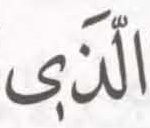 الَّذٖى